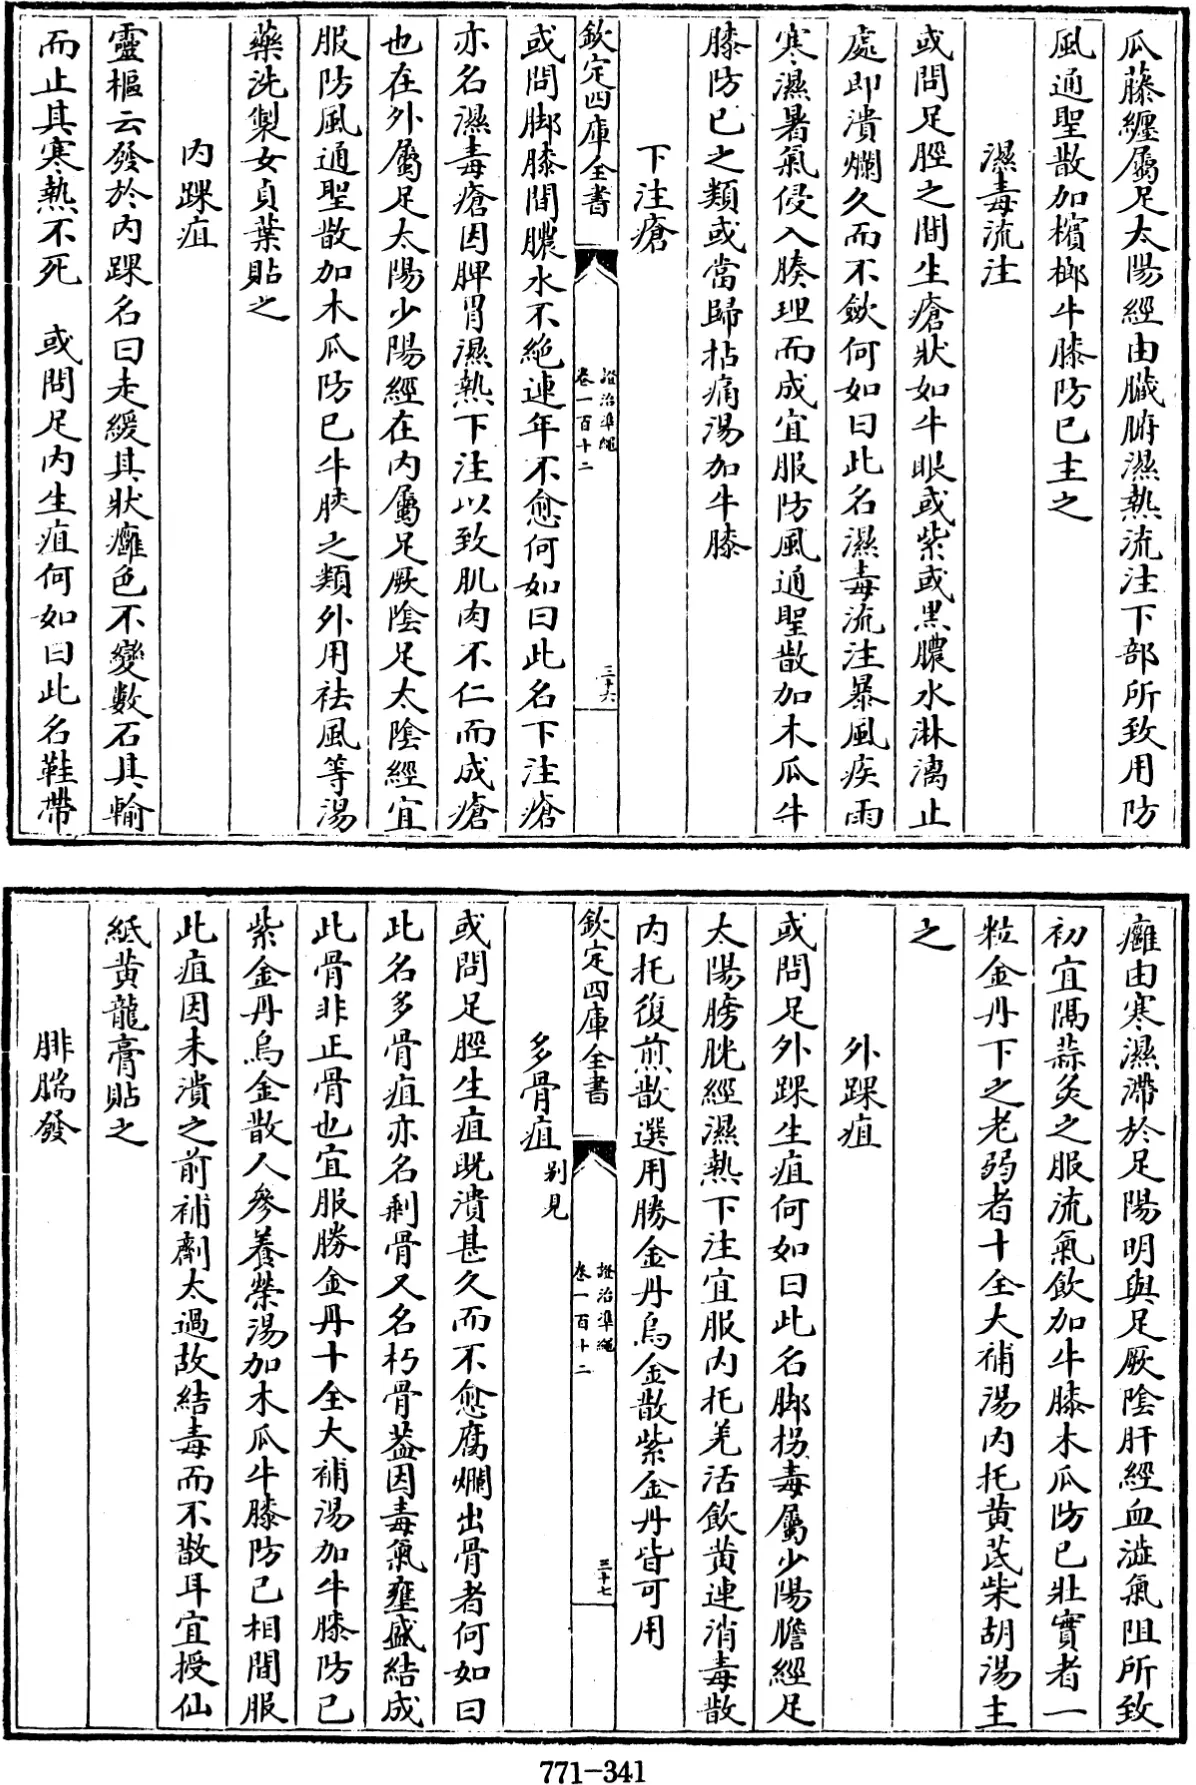 瓜藤纏屬足太陽經由臟腑濕熱流注下部所致用防
風通聖散加檳榔牛膝防已主之
濕毒流注
或問足脛之間生瘡狀如牛眼或紫或黑膿水淋漓止
處即潰爛久而不斂何如曰此名濕毒流注暴風疾雨
寒濕暑氣侵入腠理而成宜服防風通聖散加木瓜牛
膝防已之類或當歸拈痛湯加牛膝
下注瘡
欽定四庫全書
證治準繩
卷一百十二
三十六
或問脚膝間膿水不絶連年不愈何如曰此名下注瘡
亦名濕毒瘡因脾胃濕熱下注以致肌肉不仁而成瘡
也在外屬足太陽少陽經在内屬足厥陰足太陰經宜
服防風通聖散加木瓜防已牛膝之類外用祛風等湯
藥洗製女貞葉貼之
内踝疽
靈樞云發於内踝名曰走緩其狀癰色不變數石其輸
而止其寒熱不死 或問足内生疽何如曰此名鞋帶
癰由寒濕滯於足陽明與足厥陰肝經血澁氣阻所致
初宜隔蒜灸之服流氣飲加牛膝木瓜防已壯實者一
粒金丹下之老弱者十全大補湯内托黄芪柴胡湯主
之
外踝疽
或問足外踝生疽何如曰此名脚拐毒屬少陽膽經足
太陽膀胱經濕熱下注宜服内托羌活飲黄連消毒散
内托復煎散選用勝金丹烏金散紫金丹皆可用
欽定四庫全書
證治準繩
卷一百十二
三十七
多骨疽 别見
或問足脛生疽既潰甚久而不愈腐爛出骨者何如曰
此名多骨疽亦名剩骨又名朽骨葢因毒氣壅盛結成
此骨非正骨也宜服勝金丹十全大補湯加牛膝防已
紫金丹烏金散人參養榮湯加木瓜牛膝防已相間服
此疽因未潰之前補劑太過故結毒而不散耳宜授仙
紙黄龍膏貼之
腓腨發
771-341